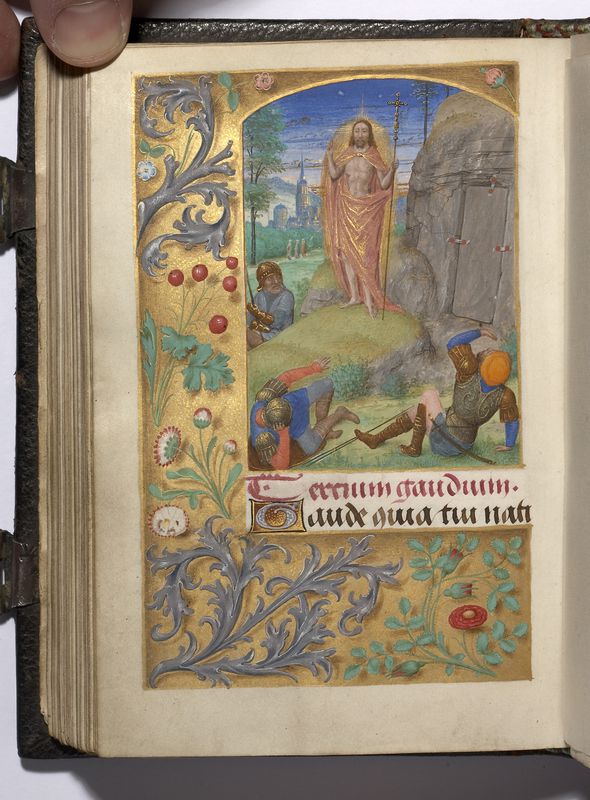 Tercium gaudium.
Gaude quia tui nati